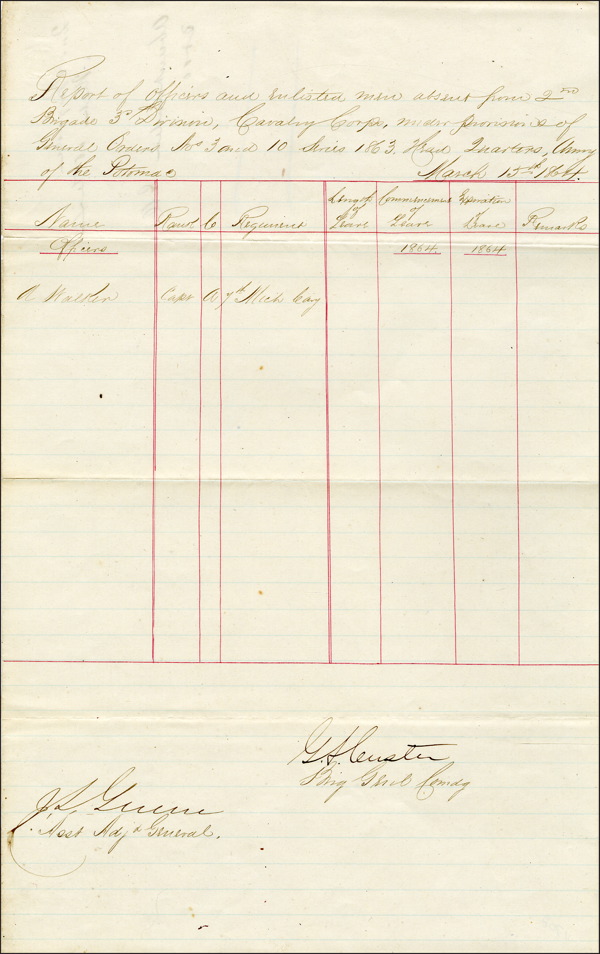 Report of Officers and Enlisted men absent from 2nd
Brigade 3d Division, Cavalry Corps, under provisions of
General Orders Nos 3 and 10 Series 1863, Head Quarters, Army
of the Potomac March 15th 1864.
Name Rank C Regiment Length of Leave Commencement of Leave Expiration Leave Remarks
Officers 1864 1864
Walker Capt A 7th Mich Cav
G. A. Custer
Brig Genl Comdg
J. L. Greene
Asst Adjt General.